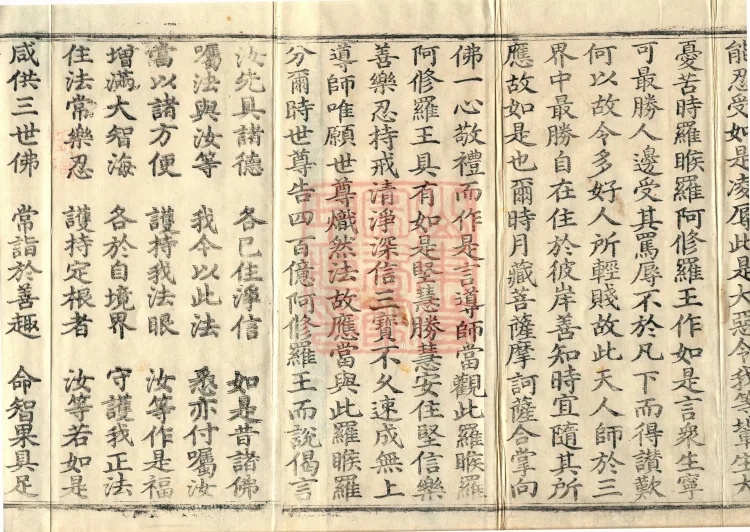 能忍受如是凌辱此是大惡今我等豈生大
憂苦時羅睺羅阿修羅王作如是言衆生寧
可最勝人邊受其罵辱不於凡下而得讃歎
何以故今多好人所輕賤故此天人師於三
界中最勝自在住於彼岸善知時宜隨其所
應故如是也爾時月藏菩薩摩訶薩合掌向
佛一心敬禮而作是言導師當觀此羅睺羅
阿修羅王具有如是堅慧勝慧安住堅信樂
善樂忍持戒清淨深信三寳不久速成無上
導師唯願世尊熾然法故應當與此羅睺羅
分爾時世尊告四百億阿修羅王而說偈言
汝先具諸德 各已住淨信 如是昔諸佛
囑法與汝等 我今以此法 悉亦付囑汝
當以諸方便 護持我法眼 汝等作是福
增滿大智海 各於自境界 守護我正法
住法常樂忍 護持定根者 汝等若如是
咸供三世佛 常詣於善趣 命智果具足